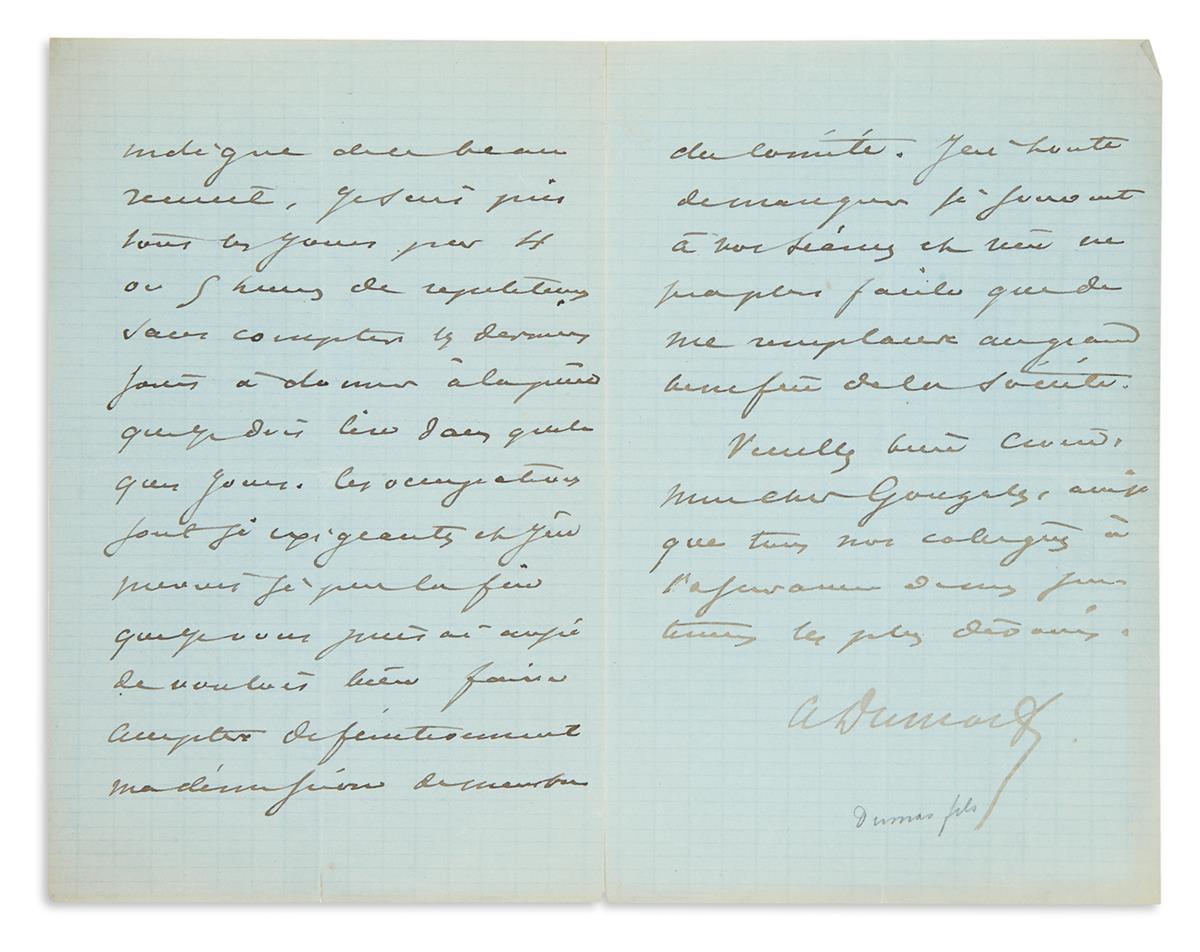 indigne de ce beau
renint, je suis pris
tous les jours par 4
ou 5 heures de repetitions
sans compter les derniers
soins à donner à la pièce
que je dois lire dans quel
ques jours. Ces occupations
sont si exigeantes et j'en
prevois si peu la fin
que je vous prierai aussi
de vouloir bien faire
accepter definitivement
ma démission de membre
du Comité. J'ai honte
de manquer si souvent
à vos séances et rien ne
sera plus facile que de
me remplacer au grand
benefice de la Société.
Veuillez bien croire,
mon cher Gonzalès, ainsi
que tous nos collegues à
l'assurance de mes sen-
timens les plus dévoués.
A Dumas f
Dumas fils